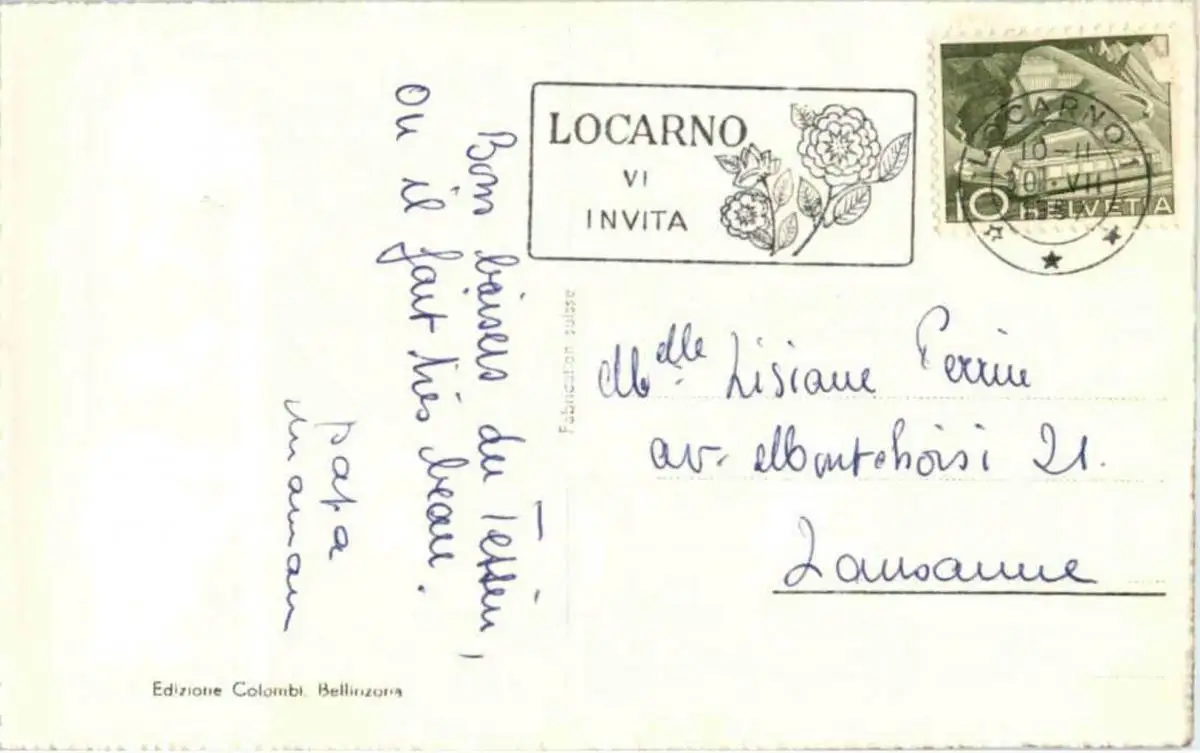 LOCARNO
VI
INVITA
LOCARNO 1
10-11
VII
10 HELVETIA
Bons baisers du Tessin,
où il fait très beau.
papa
maman
Fabrication suisse
Mlle Lisiane Perrin
av. Montchoisi 21.
Lausanne
Edizione Colombi, Bellinzona